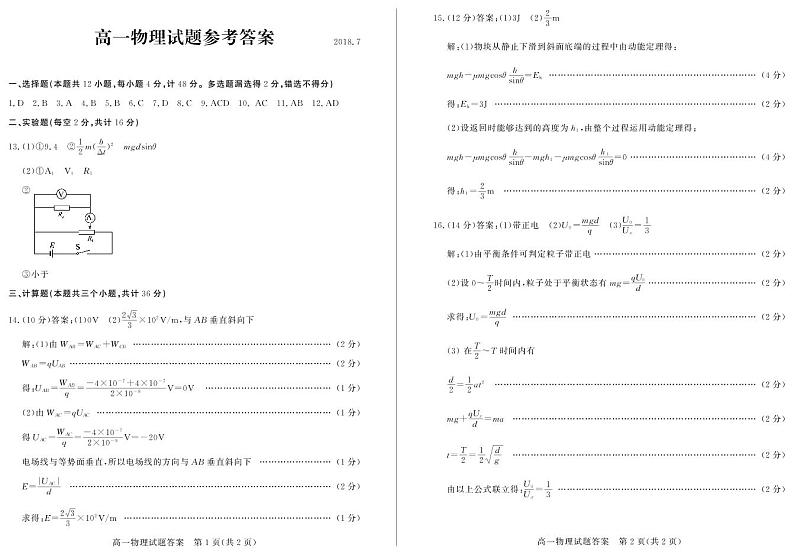 高一物理试题参考答案 2018.7
一、选择题(本题共12小题,每小题4分,计48分。多选题漏选得2分,错选不得分)
1.D 2.B 3.A 4.B 5.B 6.C 7.D 8.C 9.ACD 10.AC 11.AB 12.AD
二、实验题(每空2分,共计16分)
13.(1)①9.4 ②\frac{1}{2}m(\frac{b}{Δt})² mgdsinθ
(2)①A₁ V₁ R₁
②
V
Rₓ
A
R₁
E S
③小于
三、计算题(本题共三个小题,共计36分)
14.(10分)答案:(1)0V (2)\frac{2\sqrt{3}}{3}×10²V/m,与AB垂直斜向下
解:(1)由W_{AB}=W_{AC}+W_{CB} ……(2分)
W_{AB}=qU_{AB} ……(2分)
得:U_{AB}=\frac{W_{AB}}{q}=\frac{-4×10^{-7}+4×10^{-7}}{2×10^{-8}}V=0V ……(1分)
(2)由W_{AC}=qU_{AC} ……(1分)
得U_{AC}=\frac{W_{AC}}{q}=\frac{-4×10^{-7}}{2×10^{-8}}V=-20V
电场线与等势面垂直,所以电场线的方向与AB垂直斜向下 ……(1分)
E=\frac{|U_{AC}|}{d} ……(2分)
求得:E=\frac{2\sqrt{3}}{3}×10²V/m ……(1分)
高一物理试题答案 第1页(共2页)
15.(12分)答案:(1)3J (2)\frac{2}{3}m
解:(1)物块从静止下滑到斜面底端的过程中由动能定理得:
mgh-μmgcosθ\frac{h}{sinθ}=E_k ……(4分)
得:E_k=3J ……(2分)
(2)设返回时能够达到的高度为h₁,由整个过程运用动能定理得:
mgh-μmgcosθ\frac{h}{sinθ}-mgh₁-μmgcosθ\frac{h₁}{sinθ}=0 ……(4分)
得:h₁=\frac{2}{3}m ……(2分)
16.(14分)答案:(1)带正电 (2)U₀=\frac{mgd}{q} (3)\frac{U₀}{Uₓ}=\frac{1}{3}
解:(1)由平衡条件可判定粒子带正电 ……(2分)
(2)设0~\frac{T}{2}时间内,粒子处于平衡状态有mg=\frac{qU₀}{d} ……(2分)
求得:U₀=\frac{mgd}{q} ……(2分)
(3)在\frac{T}{2}~T时间内有
\frac{d}{2}=\frac{1}{2}at² ……(2分)
mg+\frac{qUₓ}{d}=ma ……(2分)
t=\frac{T}{2}=\frac{1}{2}\sqrt{\frac{d}{g}} ……(2分)
由以上公式联立得:\frac{U₀}{Uₓ}=\frac{1}{3} ……(2分)
高一物理试题答案 第2页(共2页)